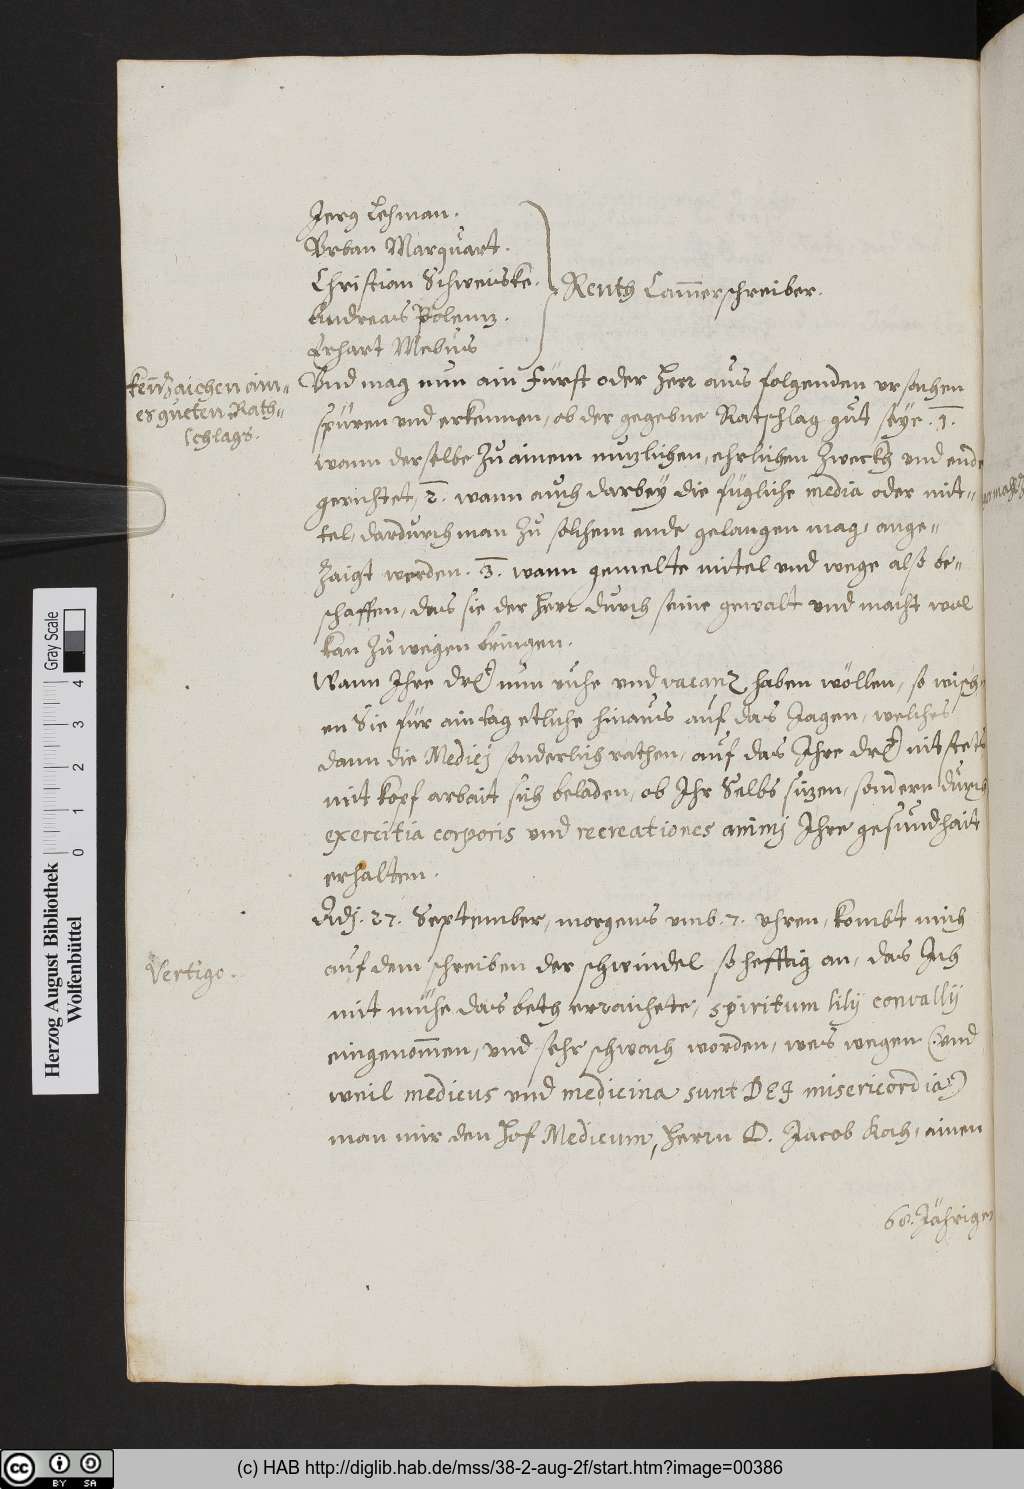 Jerg Lehman.
Vrban Marquart.
Christian Schweiske.
Andreas Polenz.
Erhart Mebius
Renth Cam̄erschreiber.
Ken̄zaichen ain-
es gueten Rath-
schlags.
Vnd mag nun ain Fürst oder Herr aus folgenden vrsachen
spüren vnd erkennen, ob der gegebne Ratschlag gut seye. 1.
wann derselbe zu ainem nuzlichen, ehrlichen Zweckh vnd ende
gerichtet, 2. wann auch darbey die fügliche media oder mit-
tel, dardurch man zu solchem ende gelangen mag, ange-
zaigt werden. 3. wann gemelte mitel vnd wege also be-
schaffen, das sie der Herr durch seine gewalt vnd macht wol
kan zu wegen bringen.
Wann Ihre Drl. nun ruhe vnd vacanz haben wöllen, so wisch-
en Sie für ain tag etliche hinaus auf das Jagen, welches
dann die Medicj sonderlich rathen, auf das Ihre Drl. nit stets
mit kopf arbait sich beladen, ob Ihr Selbs sizen, sondern durch
exercitia corporis vnd recreationes animj Ihre gesundhait
erhalten.
Adj. 27. September, morgens vmb. 7. vhren, kombt mich
Vertigo.
auf dem schreiben der schwindel so hefftig an, das Ich
mit mühe das beth erraichete, spiritum lilij convallij
eingenom̄en, vnd sehr schwach worden, wes wegen (: vnd
weil medicus vnd medicina sunt DEJ misericordia :)
man mir den Hof Medicum, Herrn D. Jacob Koch, ainen
68. Jährigen
Herzog August Bibliothek
Wolfenbüttel
0 1 2 3 4
Gray Scale
cc BY SA
(c) HAB http://diglib.hab.de/mss/38-2-aug-2f/start.htm?image=00386